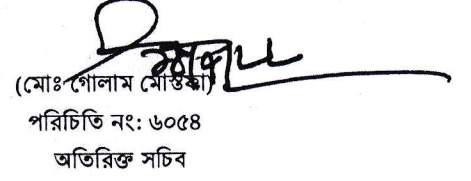 (মোঃ গোলাম মোস্তফা)
পরিচিতি নং: ৬০৫৪
অতিরিক্ত সচিব